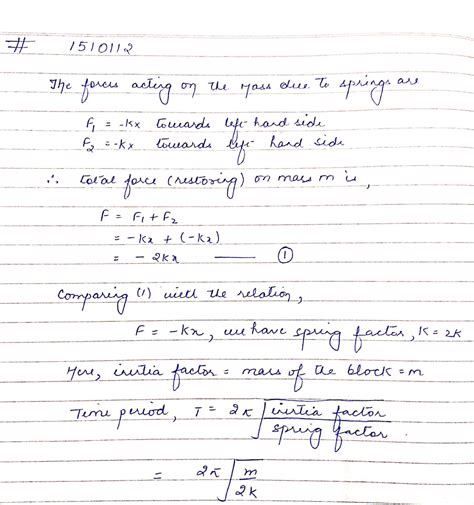 # 1510112
The forces acting on the mass due to springs are
F₁ = -Kx towards left hand side
F₂ = -Kx towards left hand side
∴ total force (restoring) on mass m is,
F = F₁ + F₂
= -Kx + (-Kx)
= - 2Kx —— ①
Comparing (1) with the relation,
F = -Kx, we have spring factor, K = 2K
Here, inertia factor = mass of the block = m
Time period, T = 2π √(inertia factor / spring factor).
= 2π √(m / 2K)